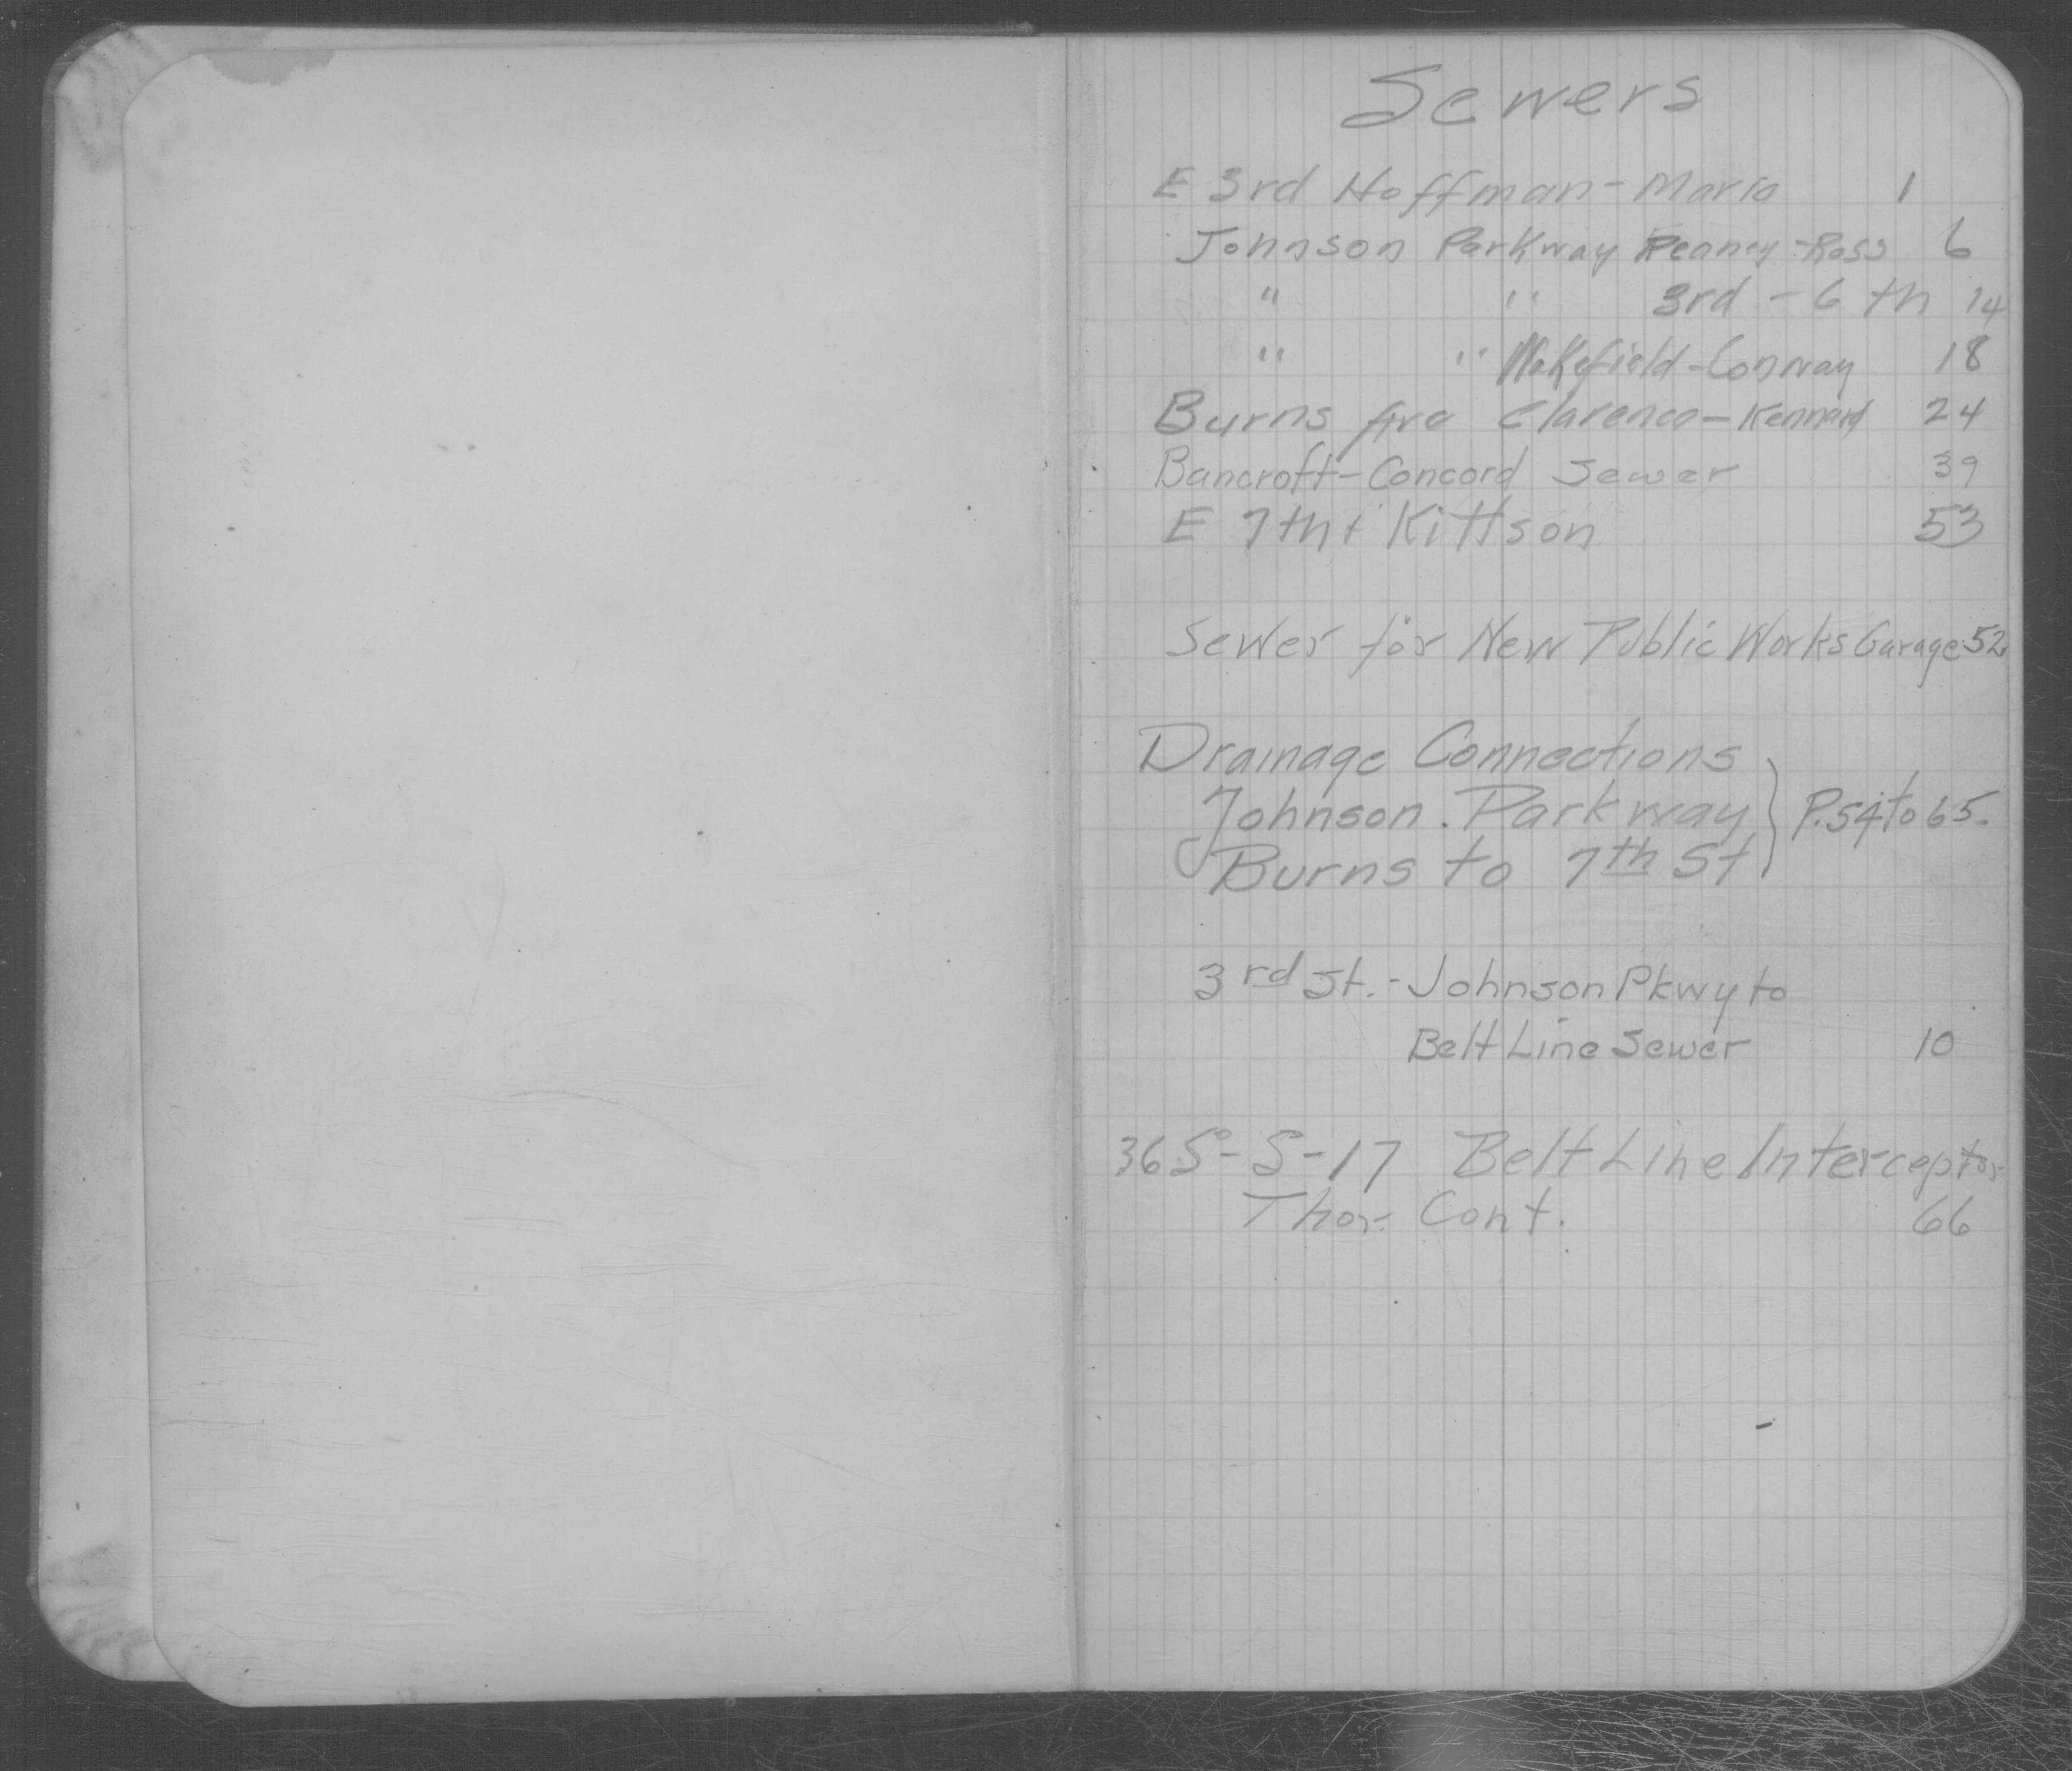 Sewers
E 3rd Hoffman - Maria 1
Johnson Parkway Reaney - Ross 6
" " 3rd - 6th 14
" " Wakefield - Conway 18
Burns Ave Clarence - Kennard 24
Bancroft - Concord Sewer 39
E 7th + Kittson 53
Sewer for New Public Works Garage 52
Drainage Connections
Johnson Parkway } P. 54 to 65.
Burns to 7th St
3rd St. - Johnson Pkwy to
Belt Line Sewer 10
36S-S-17 Belt Line Interceptor
Thor. Cont. 66